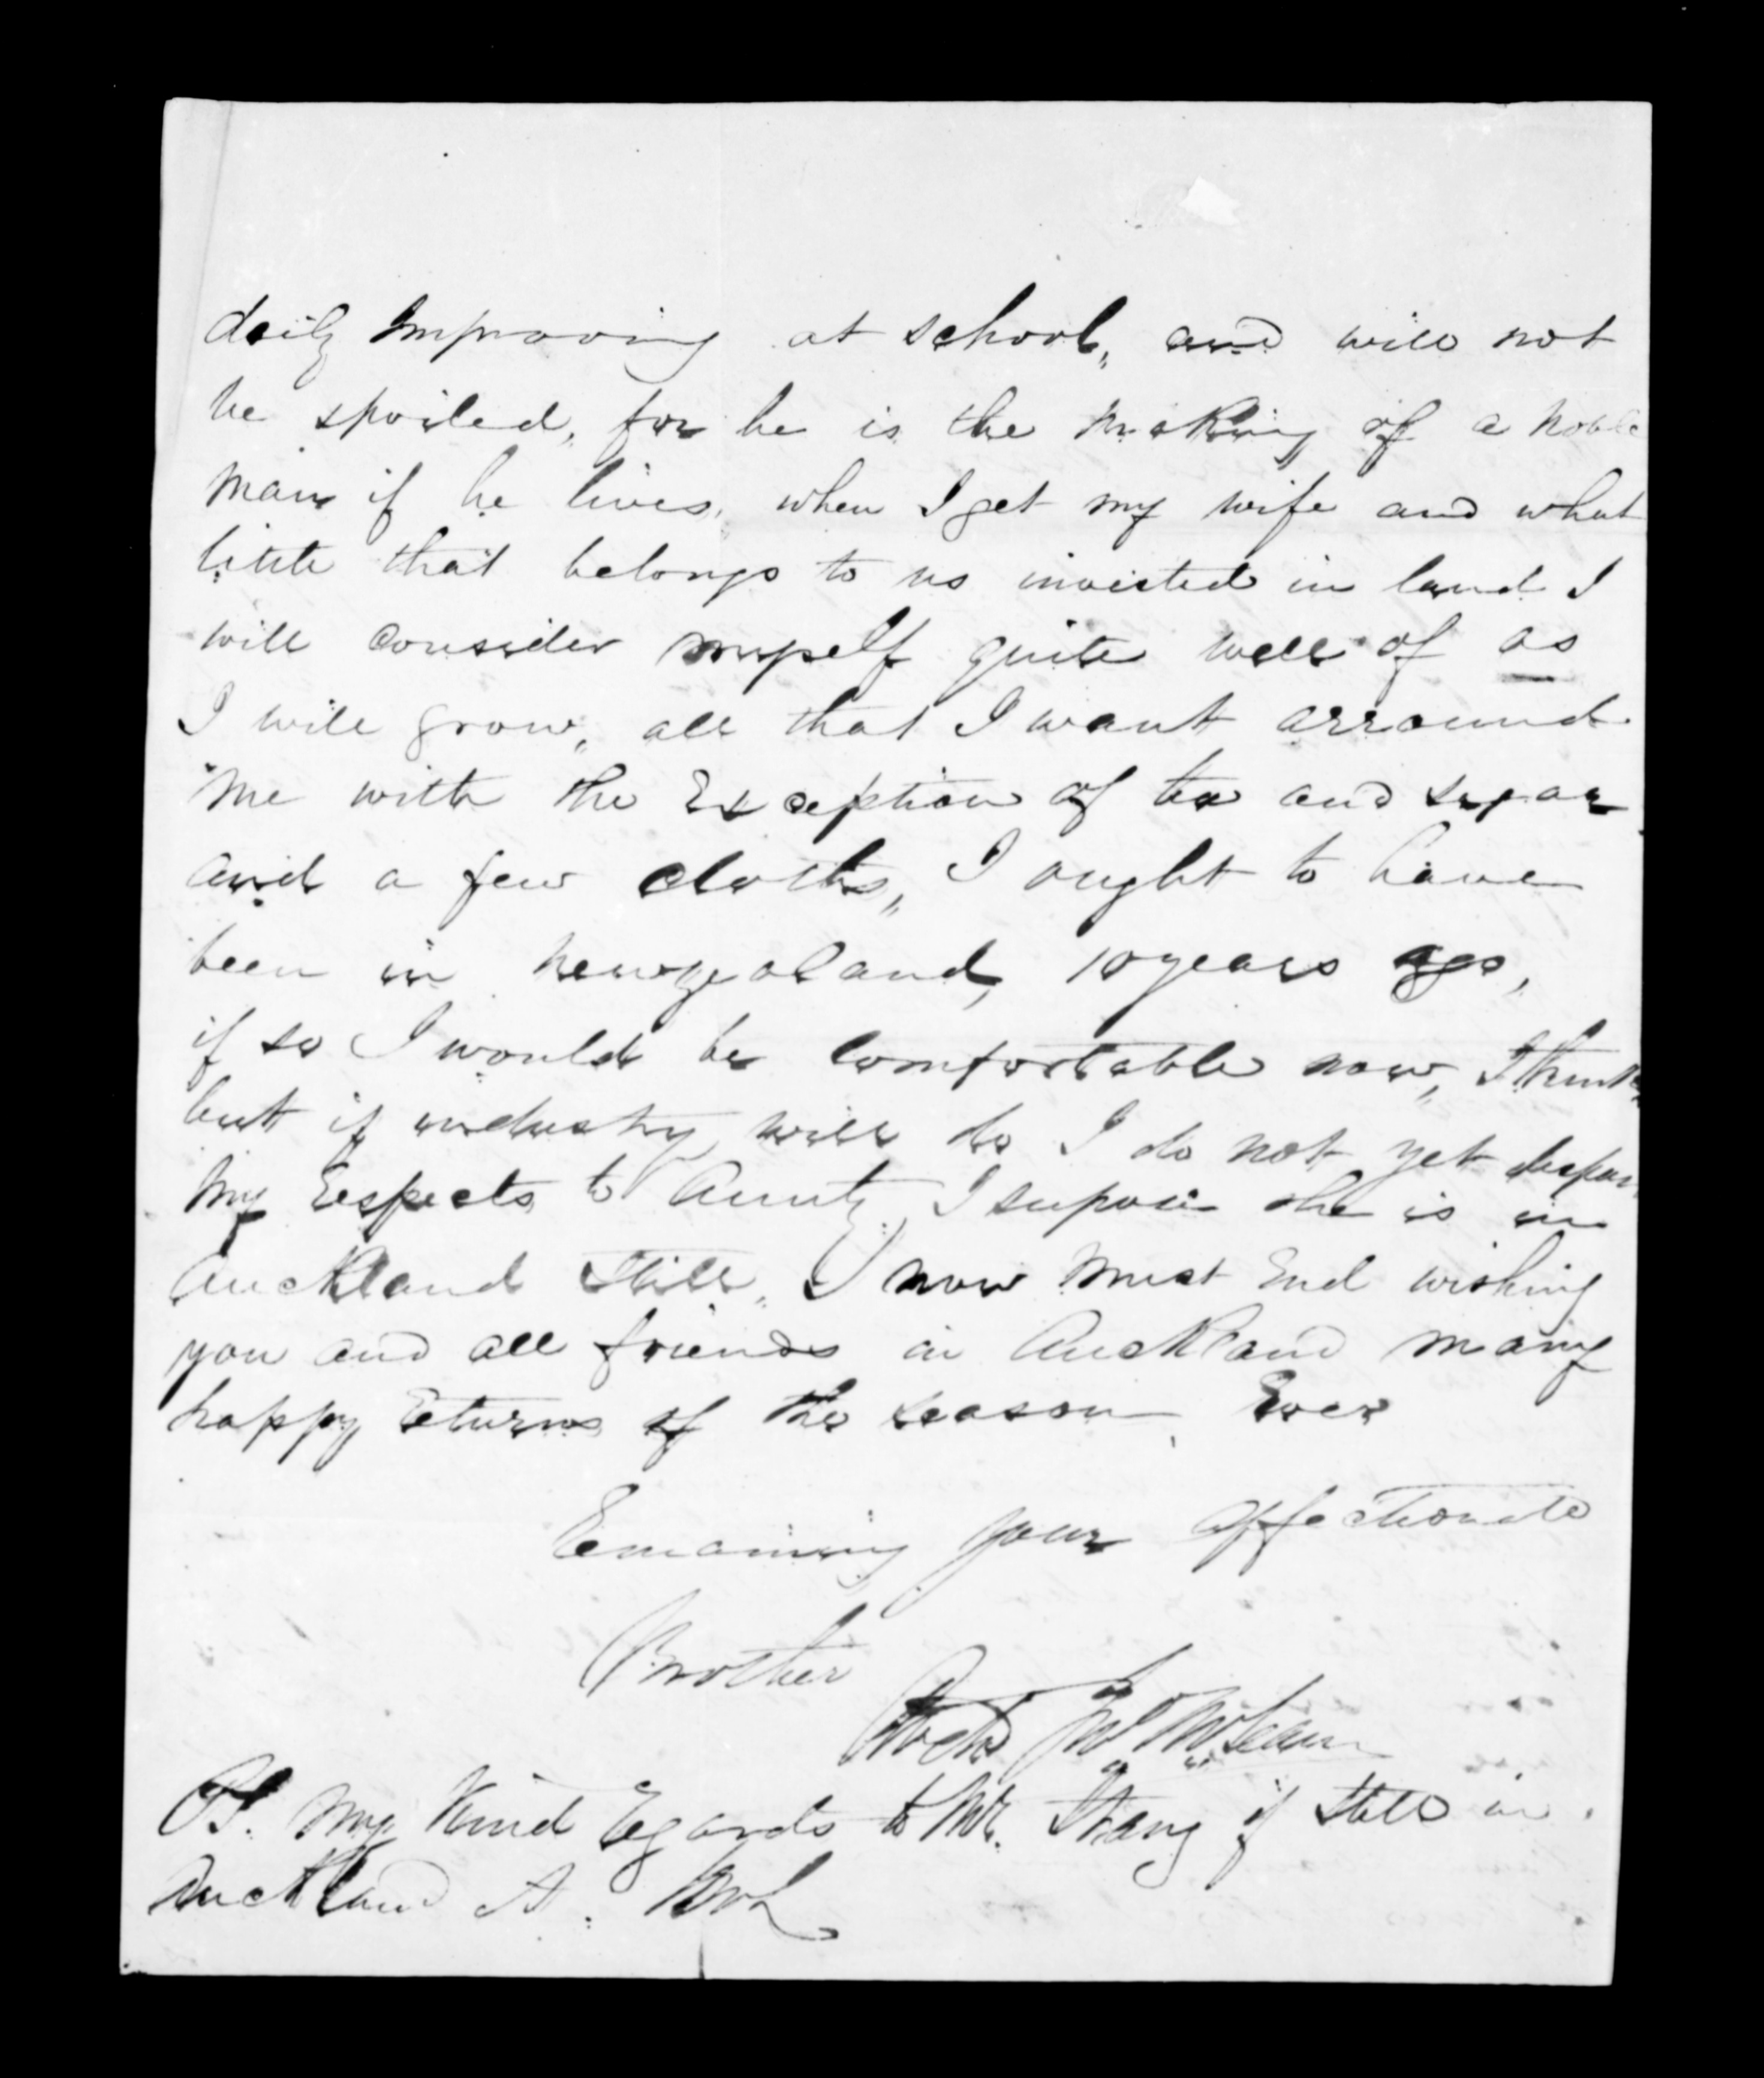 daily Improving at school, and will not
be spoiled, for he is the making of a noble
man if he lives, when I get my wife and what
little that belongs to us invested in land I
will consider myself quite well of as
I will grow, all that I want arround
me with the Exception of tea and sugar
and a few cloths, I ought to have
been in newzealand, 10 years ago,
if so I would be comfortable now, I think
but if industry will do I do not yet despair
My Respects to Aunty, I supose she is in
Auckland still, I now must End wishing
you and all friends in Auckland many
happy Returns of the season Ever
Remaining your affectionate
Brother
Archd Jno McLean
PS. My Kind Regards to Mr. Strang if still in
Auckland A. McL